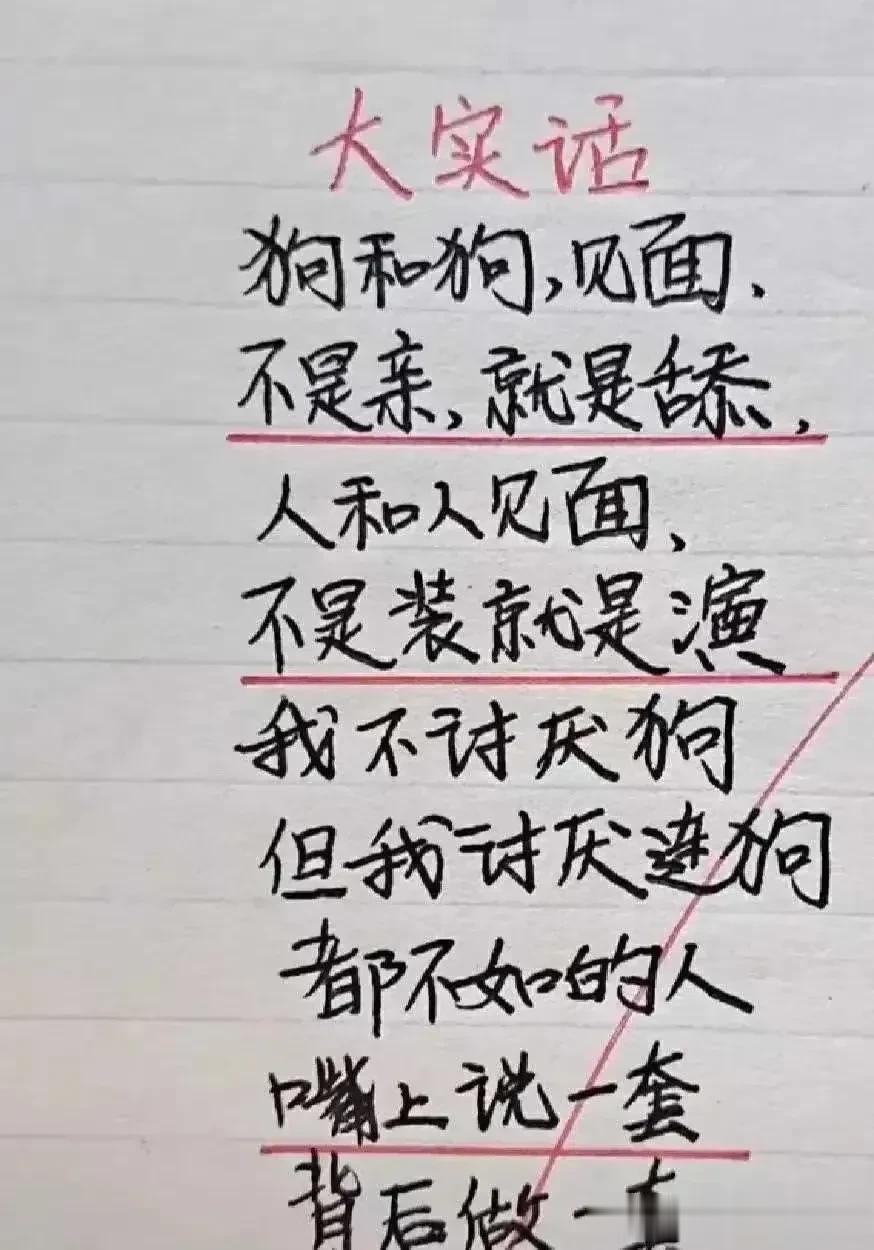 大实话
狗和狗,见面、
不是亲,就是舔,
人和人见面、
不是装就是演
我不讨厌狗
但我讨厌连狗
都不如的人
嘴上说一套
背后做一套